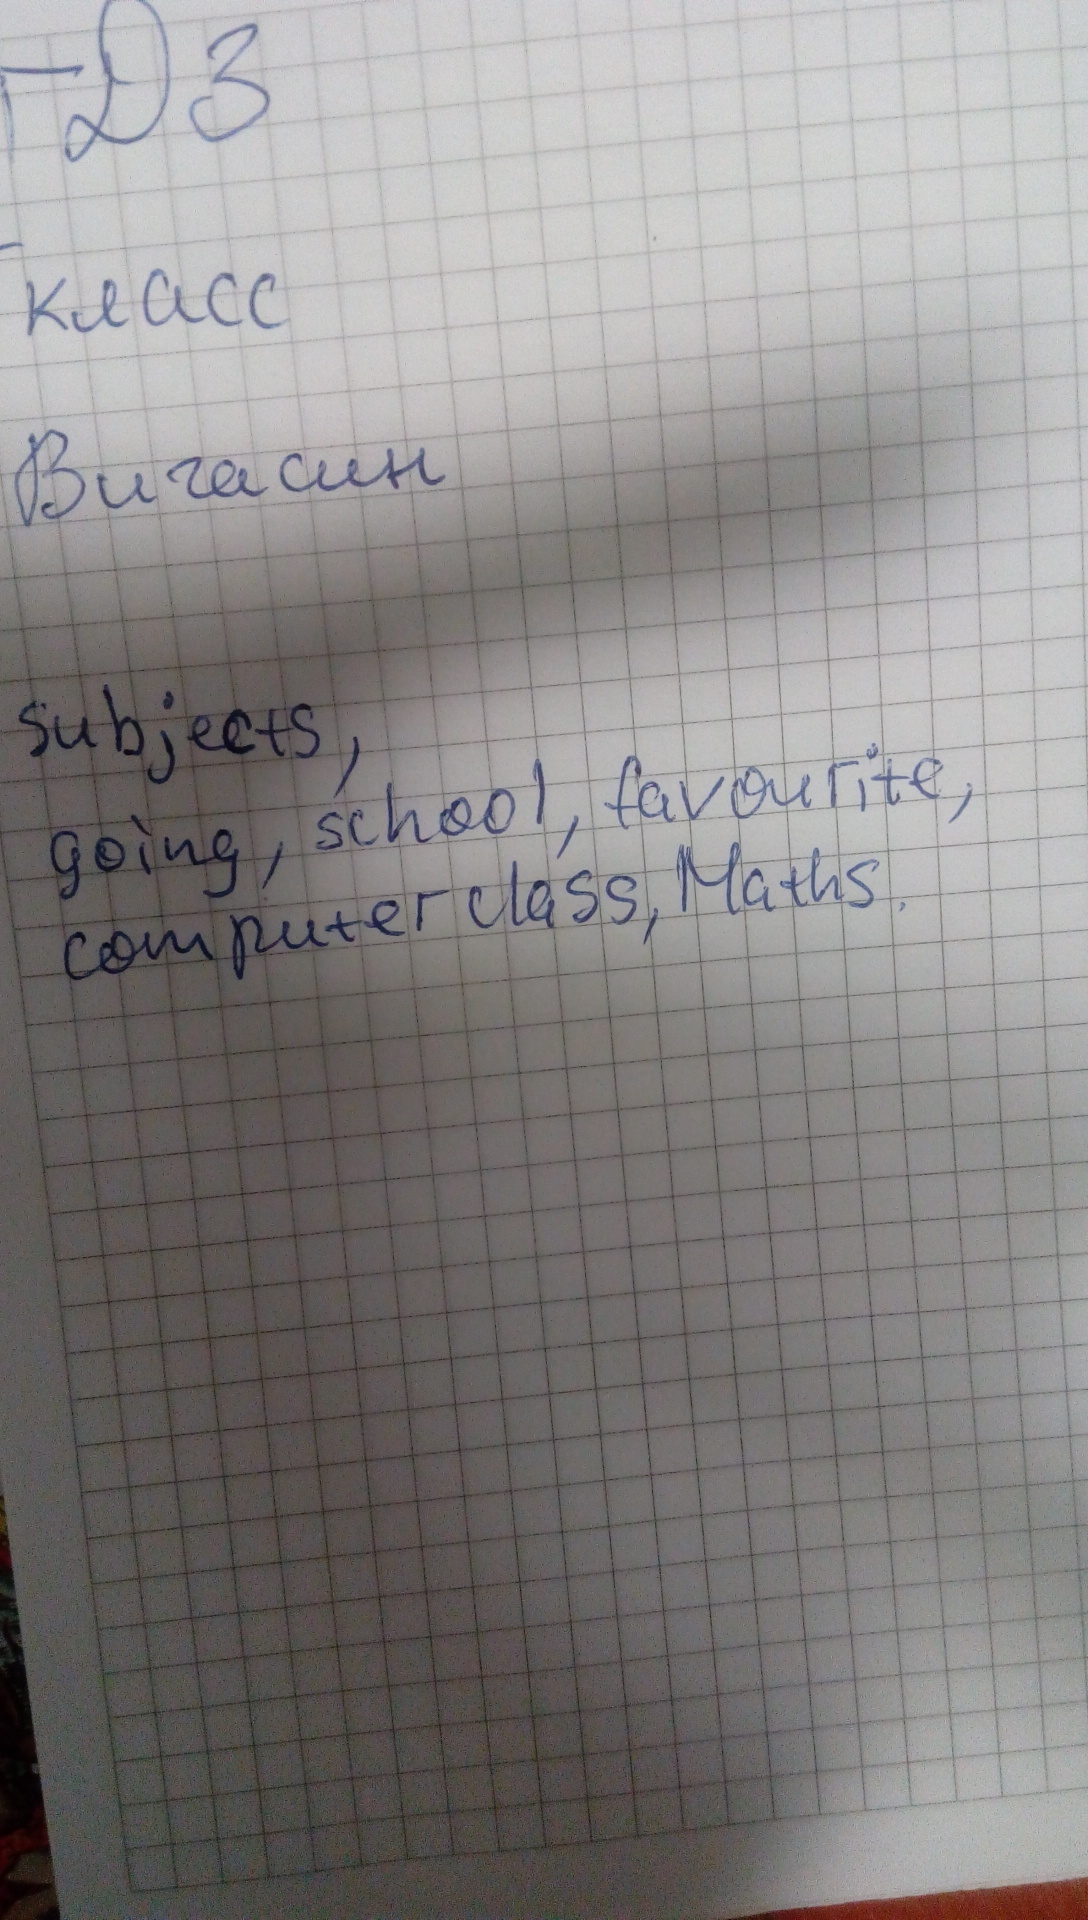 ГДЗ
класс
Вигасин
subjects,
going, school, favourite,
computer class, Maths.